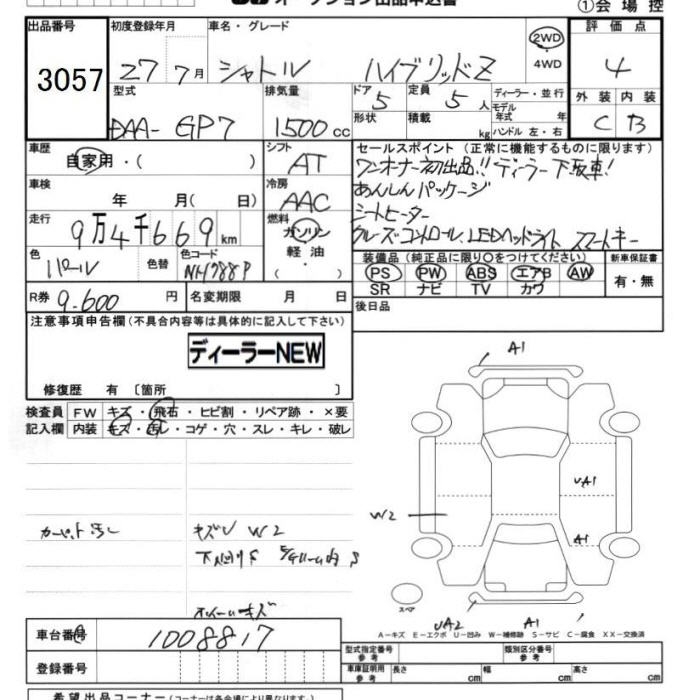 オークション出品申込書
①会場控
出品番号 初度登録年月 車名・グレード 評価点
3057 27 7月 シャトル ハイブリッドZ 2WD 4WD 4
型式 排気量 ドア 5 定員 5人 ディーラー・並行 外装 内装
DAA-GP7 1500cc 形状 積載 kg モデル年式 年 ハンドル 左・右 C B
車歴 シフト セールスポイント(正常に機能するものに限ります)
自家用・( ) AT ワンオーナー初出品!!ディーラー下取車!
車検 冷房 あんしんパッケージ
年 月( 日) AAC シートヒーター
走行 燃料 クルーズコントロール、LEDヘッドライト スマートキー
9万4千669km ガソリン
軽油・
( )
色 色替 色コード 装備品(純正品に限り○をつけてください) 新車保証書
パール NH788P PS PW ABS エアB AW 有・無
SR ナビ TV カワ
R券 9.600円 名変期限 月 日 後日品
注意事項申告欄(不具合内容等は具体的に記入して下さい)
ディーラーNEW
修復歴 有〔箇所 〕
検査員 FW キズ・飛石・ヒビ割・リペア跡・×要
記入欄 内装 キズ・汚レ・コゲ・穴・スレ・キレ・破レ
A1
UA1
W2
A1
カーペット汚レ キズU W2
下回りS
ホイールキズ
スペア
UA2 A1
A-キズ E-エクボ U-凹み W-補修跡 S-サビ C-腐食 XX-交換済
車台番号 1008817
型式指定番号参考 類別区分番号参考
登録番号 車庫証明用参考 長さ cm 幅 cm 高さ cm
希望出品コーナー(コーナーは各会場により異なります。)